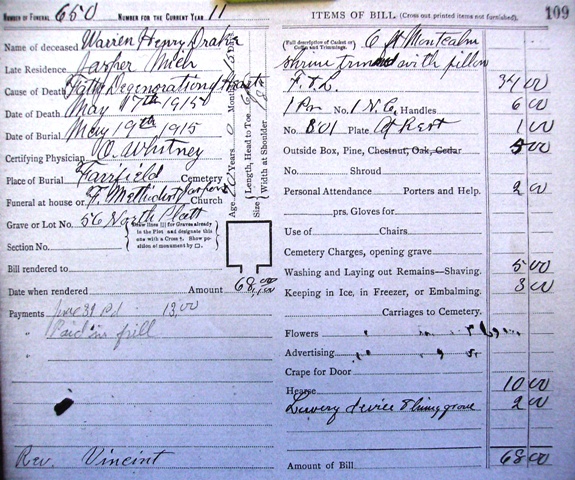 NUMBER OF FUNERAL 650 NUMBER FOR THE CURRENT YEAR 11
Name of deceased Warren Henry Drake
Late Residence Jasper Mich
Cause of Death Fatty Degeneration Heart
Date of Death May 17th 1915
Date of Burial May 19th 1915
Certifying Physician O. Whitney
Place of Burial Fairfield Cemetery
Funeral at house or F. Methodist Jasper Church
Grave or Lot No. 56 North Platt
(Show lines for Graves already in the Plot and designate this one with a Cross †. Show position of monument by □.)
Section No.
Bill rendered to
Date when rendered Amount 68.00
Payments June 31 Pd 13,00
" Paid in full
"
Rev. Vincint
Age Years 0 Months Days
Length, Head to Toe
Size Width at Shoulder
ITEMS OF BILL (Cross out printed items not furnished). 109
(Full description of Casket or Coffin and Trimmings. 6 ft Montcalm
shrine trimed with pillow
F. T. L. 34 00
1 Pr No. 1 N. C. Handles 6 00
No. 801 Plate At Rest 1 00
Outside Box, Pine, Chestnut, Oak, Cedar 5 00
No. Shroud
Personal Attendance Porters and Help. 2 00
prs. Gloves for
Use of Chairs
Cemetery Charges, opening grave
Washing and Laying out Remains—Shaving. 5 00
Keeping in Ice, in Freezer, or Embalming. 3 00
Carriages to Cemetery.
Flowers
Advertising
Crape for Door
Hearse 10 00
Lowery device grave 2 00
Amount of Bill 68 00